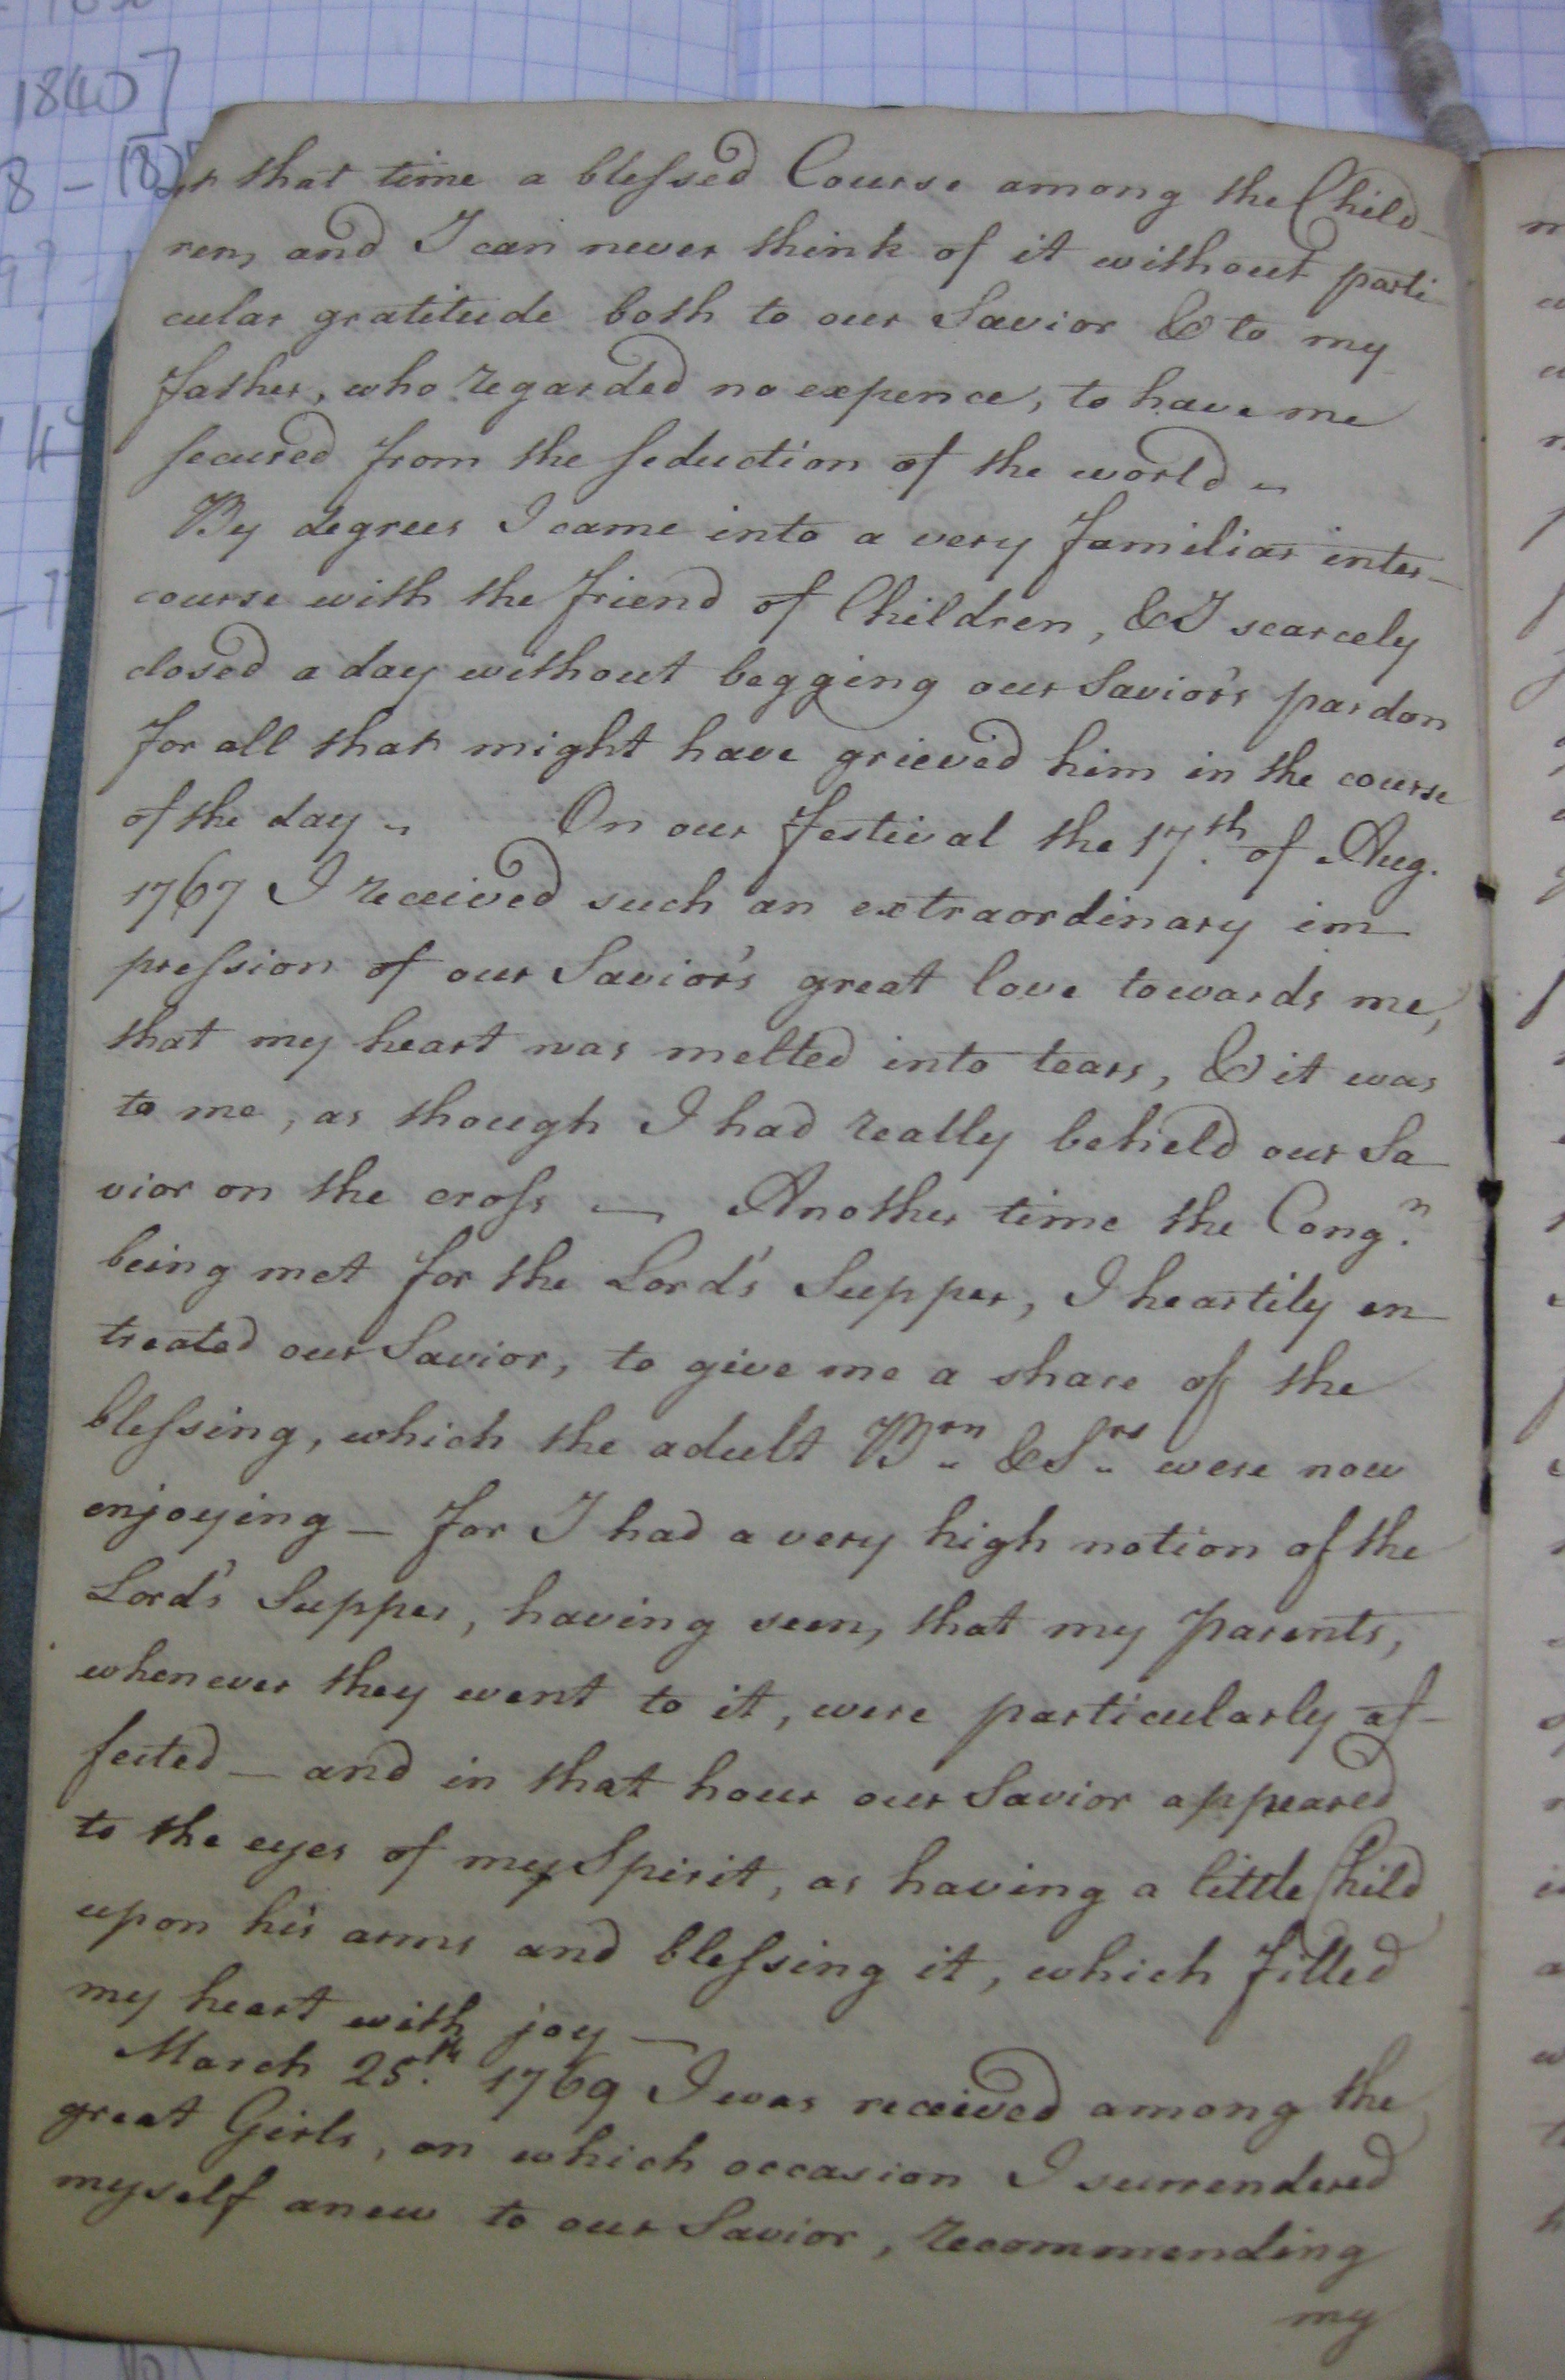 1840]
8 - 18
at that time a blessed Course among the Child-
ren, and I can never think of it without parti-
cular gratitude both to our Savior & to my
father, who regarded no expence, to have me
secured from the seduction of the world -
By degrees I came into a very familiar inter-
course with the friend of Children, & I scarcely
closed a day without begging our Savior's pardon
for all that might have grieved him in the course
of the day - On our festival the 17.th of Aug.
1767 I received such an extraordinary im-
pression of our Savior's great love towards me,
that my heart was melted into tears, & it was
to me, as though I had really beheld our Sa-
vior on the cross - Another time the Cong.n
being met for the Lord's Supper, I heartily en-
treated our Savior, to give me a share of the
blessing, which the adult Brn & Srs were now
enjoying - for I had a very high notion of the
Lord's Supper, having seen, that my parents,
whenever they went to it, were particularly af-
fected - and in that hour our Savior appeared
to the eyes of my Spirit, as having a little Child
upon his arms and blessing it, which filled
my heart with joy -
March 25.th 1769 I was received among the
great Girls, on which occasion I surrendered
myself anew to our Savior, recommending
my